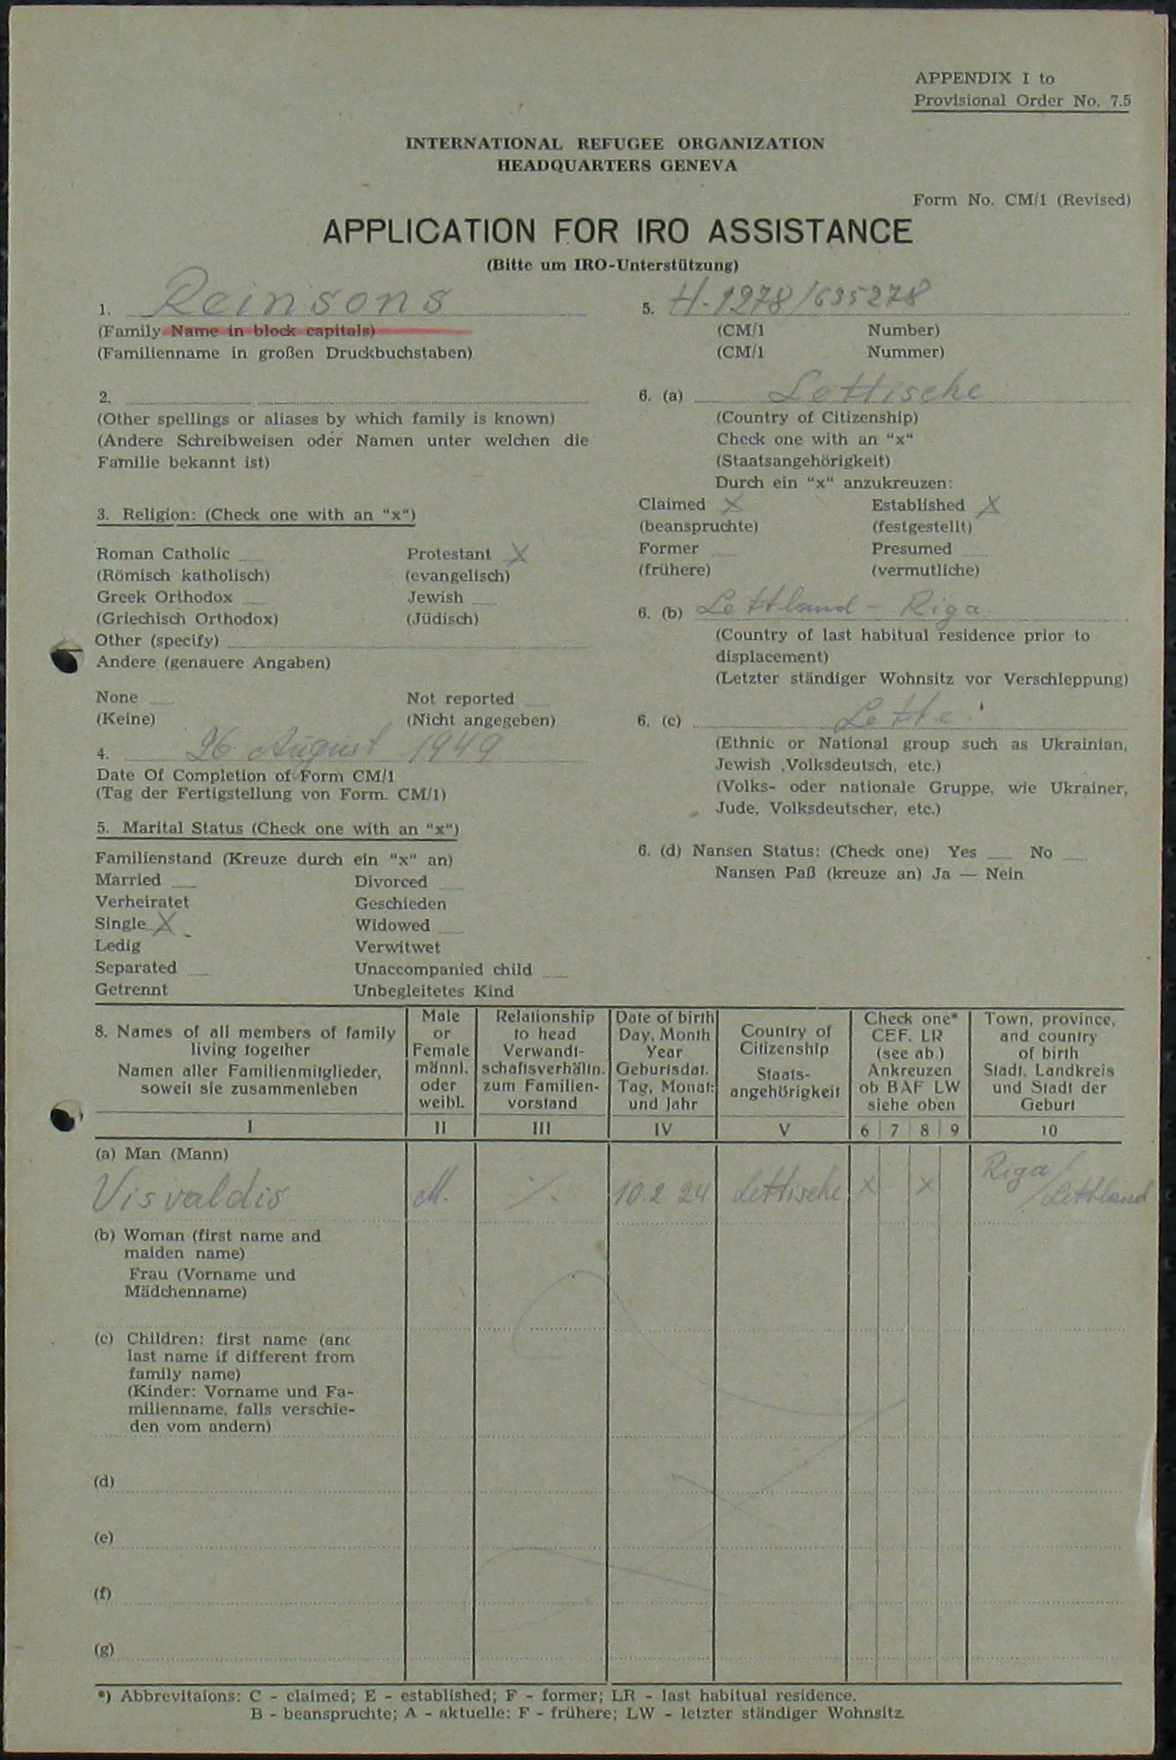 APPENDIX I to
Provisional Order No. 7.5
INTERNATIONAL REFUGEE ORGANIZATION
HEADQUARTERS GENEVA
Form No. CM/1 (Revised)
APPLICATION FOR IRO ASSISTANCE
(Bitte um IRO-Unterstützung)
1. Reinsons
(Family Name in block capitals)
(Familienname in großen Druckbuchstaben)
2.
(Other spellings or aliases by which family is known)
(Andere Schreibweisen oder Namen unter welchen die
Familie bekannt ist)
3. Religion: (Check one with an "x")
Roman Catholic Protestant X
(Römisch katholisch) (evangelisch)
Greek Orthodox Jewish
(Griechisch Orthodox) (Jüdisch)
Other (specify)
Andere (genauere Angaben)
None Not reported
(Keine) (Nicht angegeben)
4. 26. August 1949
Date Of Completion of Form CM/1
(Tag der Fertigstellung von Form. CM/1)
5. Marital Status (Check one with an "x")
Familienstand (Kreuze durch ein "x" an)
Married Divorced
Verheiratet Geschieden
Single X Widowed
Ledig Verwitwet
Separated Unaccompanied child
Getrennt Unbegleitetes Kind
5. H-1278/635278
(CM/1 Number)
(CM/1 Nummer)
6. (a) Lettische
(Country of Citizenship)
Check one with an "x"
(Staatsangehörigkeit)
Durch ein "x" anzukreuzen:
Claimed X Established X
(beanspruchte) (festgestellt)
Former Presumed
(frühere) (vermutliche)
6. (b) Lettland - Riga.
(Country of last habitual residence prior to
displacement)
(Letzter ständiger Wohnsitz vor Verschleppung)
6. (c) Lette
(Ethnic or National group such as Ukrainian,
Jewish ,Volksdeutsch, etc.)
(Volks- oder nationale Gruppe, wie Ukrainer,
Jude, Volksdeutscher, etc.)
6. (d) Nansen Status: (Check one) Yes No
Nansen Paß (kreuze an) Ja — Nein
8. Names of all members of family
living together
Namen aller Familienmitglieder,
soweit sie zusammenleben
Male
or
Female
männl.
oder
weibl.
Relationship
to head
Verwandt-
schaftsverhältn.
zum Familien-
vorstand
Date of birth
Day, Month
Year
Geburtsdat.
Tag, Monat:
und Jahr
Country of
Citizenship
Staats-
angehörigkeit
Check one*
CEF. LR
(see ab.)
Ankreuzen
ob BAF LW
siehe oben
Town, province,
and country
of birth
Stadt, Landkreis
und Stadt der
Geburt
I II III IV V 6 7 8 9 10
(a) Man (Mann)
Visvaldis M. ·/. 10.2 24 Lettische X X Riga/Lettland
(b) Woman (first name and
maiden name)
Frau (Vorname und
Mädchenname)
(c) Children: first name (and
last name if different from
family name)
(Kinder: Vorname und Fa-
milienname, falls verschie-
den vom andern)
(d)
(e)
(f)
(g)
*) Abbrevitaions: C - claimed; E - established; F - former; LR - last habitual residence.
B - beanspruchte; A - aktuelle: F - frühere; LW - letzter ständiger Wohnsitz